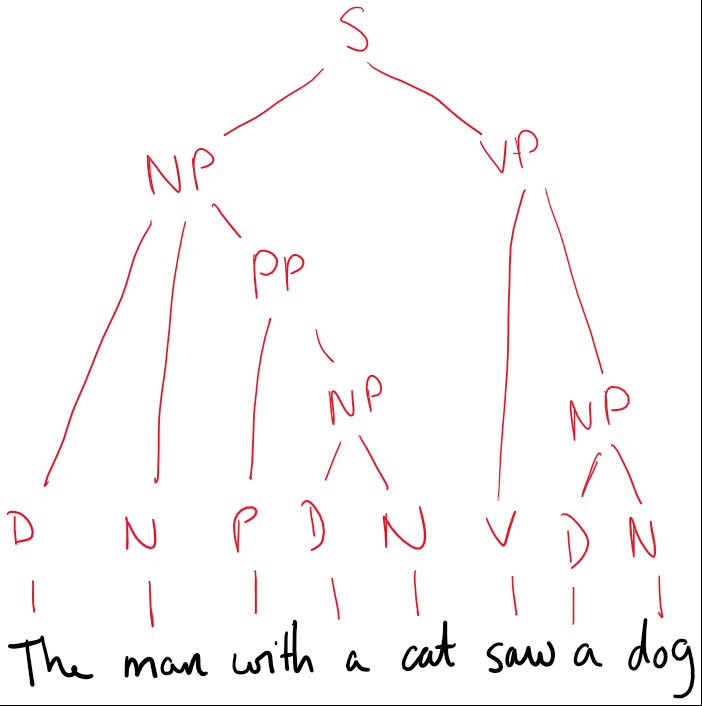 S
NP VP
PP
NP NP
D N P D N V D N
The man with a cat saw a dog